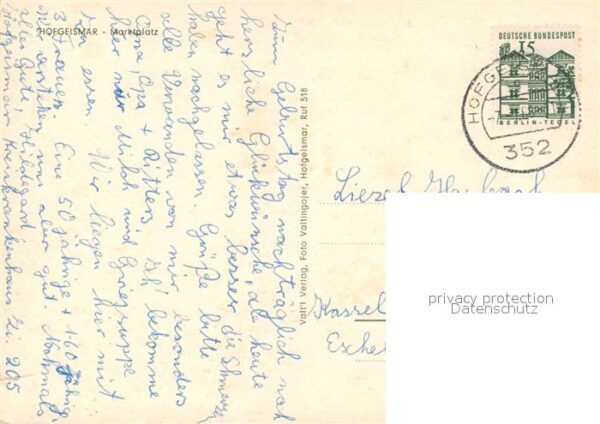 HOFGEISMAR - Marktplatz
Zum Geburtstag nachträglich noch
herzliche Glückwünsche, da heute
geht es mir etwas besser, die Schmerzen
haben nachgelassen. Grüße bitte
alle Verwandten von mir besonders
Oma, Opa + Ritters. Ich bekomme
hier nur Milch und Griessuppe
zu essen. Wir liegen hier mit
3 Frauen. Eine 50 jährige + 1 60 jährig,
wir verstehen uns aber gut. Nochmals
alles Gute! Hildegard
Hofgeismar Kreiskrankenhaus Zi. 205
Vatti Verlag, Foto Vattingojer, Hofgeismar, Ruf 518
DEUTSCHE BUNDESPOST
15
BERLIN-TEGEL
HOFGEISMAR
352
Liesel
Kassel
Esche
privacy protection
Datenschutz